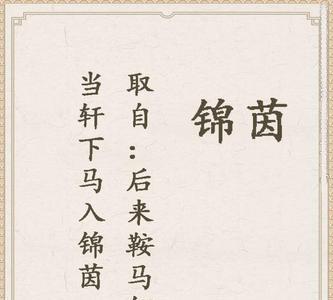 锦茵
取自：后来鞍马
当轩下马入锦茵